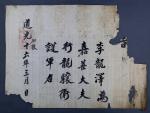 旨
李龍澤爲
嘉善大夫
行龍驤衛
護軍者
道光十六年三月 日